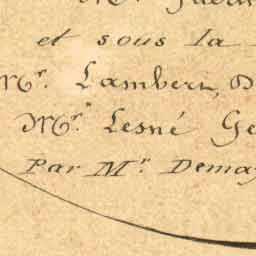 et sous la
Mr. Lambert, D
Mr. Lesné Ge
Par Mr. Demay